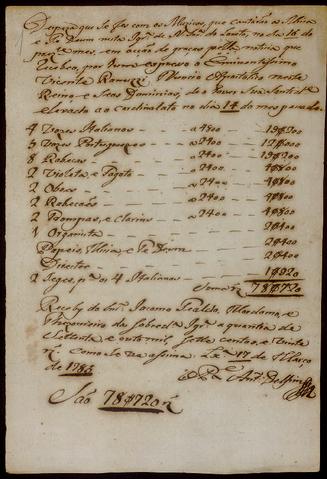 Despeza que se fez com os Muzicos, que cantárão a Missa
e Te Deum nesta Igr.ª de N. Snr.ª do Loreto, no dia 16 do
prez.te mes, em acção de graças pella noticia que
recebeo, por hum expreso o Eminentissimo
Vicente Ranuzzi Nuncio Apostolico neste
Reino, e Seos Dominios, de o haver Sua Santid.e
elevado ao cardinalato no dia 14 do mes passado.
4 Vozes Italianas — a 4800 — 19$200
5 Vozes Portuguezas — a 2400 — 12$000
8 Rabecas — a 2400 — 19$200
2 Violetas, e Fagote — a 2400 — 4$800
2 Oboes — a 2400 — 4$800
2 Rabecões — a 2400 — 4$800
2 Trompas, e Clarins — a 2400 — 4$800
1 Organista — 2$400
Papeis, Missa, e Te Deum — 2$400
Director — 2$400
2 Seges, p.ª os 4 Italianos — 1$920
Soma r.s 78$720
Receby do Snr. Jacomo Fealdo, Mordomo, e
Thezoureiro da sobred.ª Igr.ª a quantia de
Setenta e outo mil, sete centos, e vinte
r.s como se ve assima. Lx.ª 17 de Março
de 1785
Ant.o
São 78$720 r.s